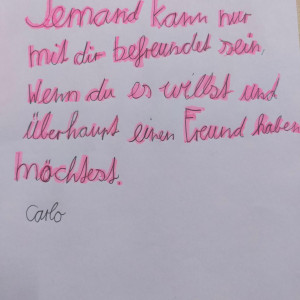 Jemand kann nur
mit dir befreundet sein,
wenn du es willst und
überhaupt einen Freund haben
möchtest.
Carlo